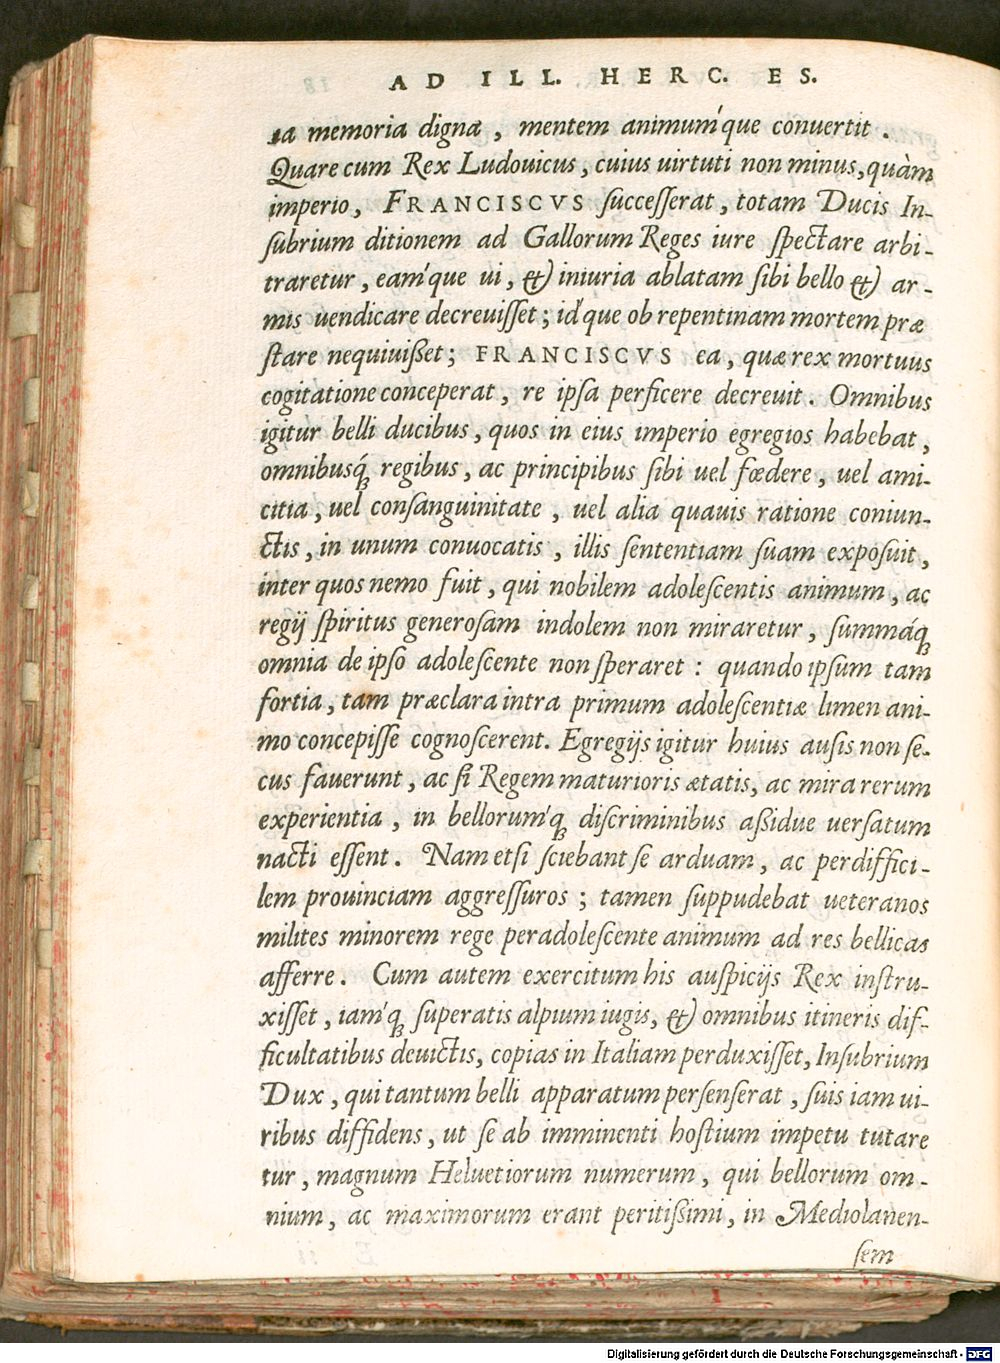 AD ILL. HERC. ES.
ta memoria digna, mentem animum´que conuertit.
Quare cum Rex Ludouicus, cuius uirtuti non minus, quàm
imperio, FRANCISCVS successerat, totam Ducis In-
subrium ditionem ad Gallorum Reges iure spectare arbi-
traretur, eam´que ui, & iniuria ablatam sibi bello & ar-
mis uendicare decreuisset; id´que ob repentinam mortem præ
stare nequiuißet; FRANCISCVS ea, quæ rex mortuus
cogitatione conceperat, re ipsa perficere decreuit. Omnibus
igitur belli ducibus, quos in eius imperio egregios habebat,
omnibusq́; regibus, ac principibus sibi uel fœdere, uel ami-
citia, uel consanguinitate, uel alia quauis ratione coniun-
ctis, in unum conuocatis, illis sententiam suam exposuit,
inter quos nemo fuit, qui nobilem adolescentis animum, ac
regij spiritus generosam indolem non miraretur, summáq;
omnia de ipso adolescente non speraret: quando ipsum tam
fortia, tam præclara intra primum adolescentiæ limen ani-
mo concepisse cognoscerent. Egregijs igitur huius ausis non se-
cus fauerunt, ac si Regem maturioris ætatis, ac mira rerum
experientia, in bellorum´q; discriminibus aßidue uersatum
nacti essent. Nam etsi sciebant se arduam, ac perdiffici-
lem prouinciam aggressuros; tamen suppudebat ueteranos
milites minorem rege peradolescente animum ad res bellicas
afferre. Cum autem exercitum his auspicijs Rex instru-
xisset, iam´q; superatis alpium iugis, & omnibus itineris dif-
ficultatibus deuictis, copias in Italiam perduxisset, Insubrium
Dux, qui tantum belli apparatum persenserat, suis iam ui-
ribus diffidens, ut se ab imminenti hostium impetu tutare
tur, magnum Heluetiorum numerum, qui bellorum om-
nium, ac maximorum erant peritißimi, in Mediolanen-
sem
Digitalisierung gefördert durch die Deutsche Forschungsgemeinschaft - DFG